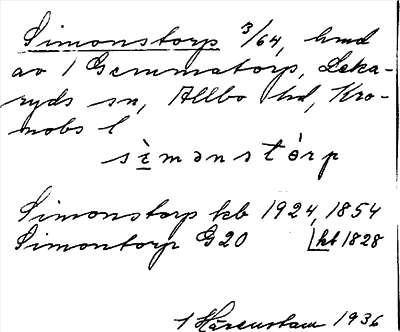 Simonstorp 3/64, hmd
av 1 Gemmatorp, Leka-
ryds sn, Allbo hd, Kro-
nobs l
sìmɔnstórp
Simonstorp kb 1924, 1854
Simontorp G20 kb 1828
1936